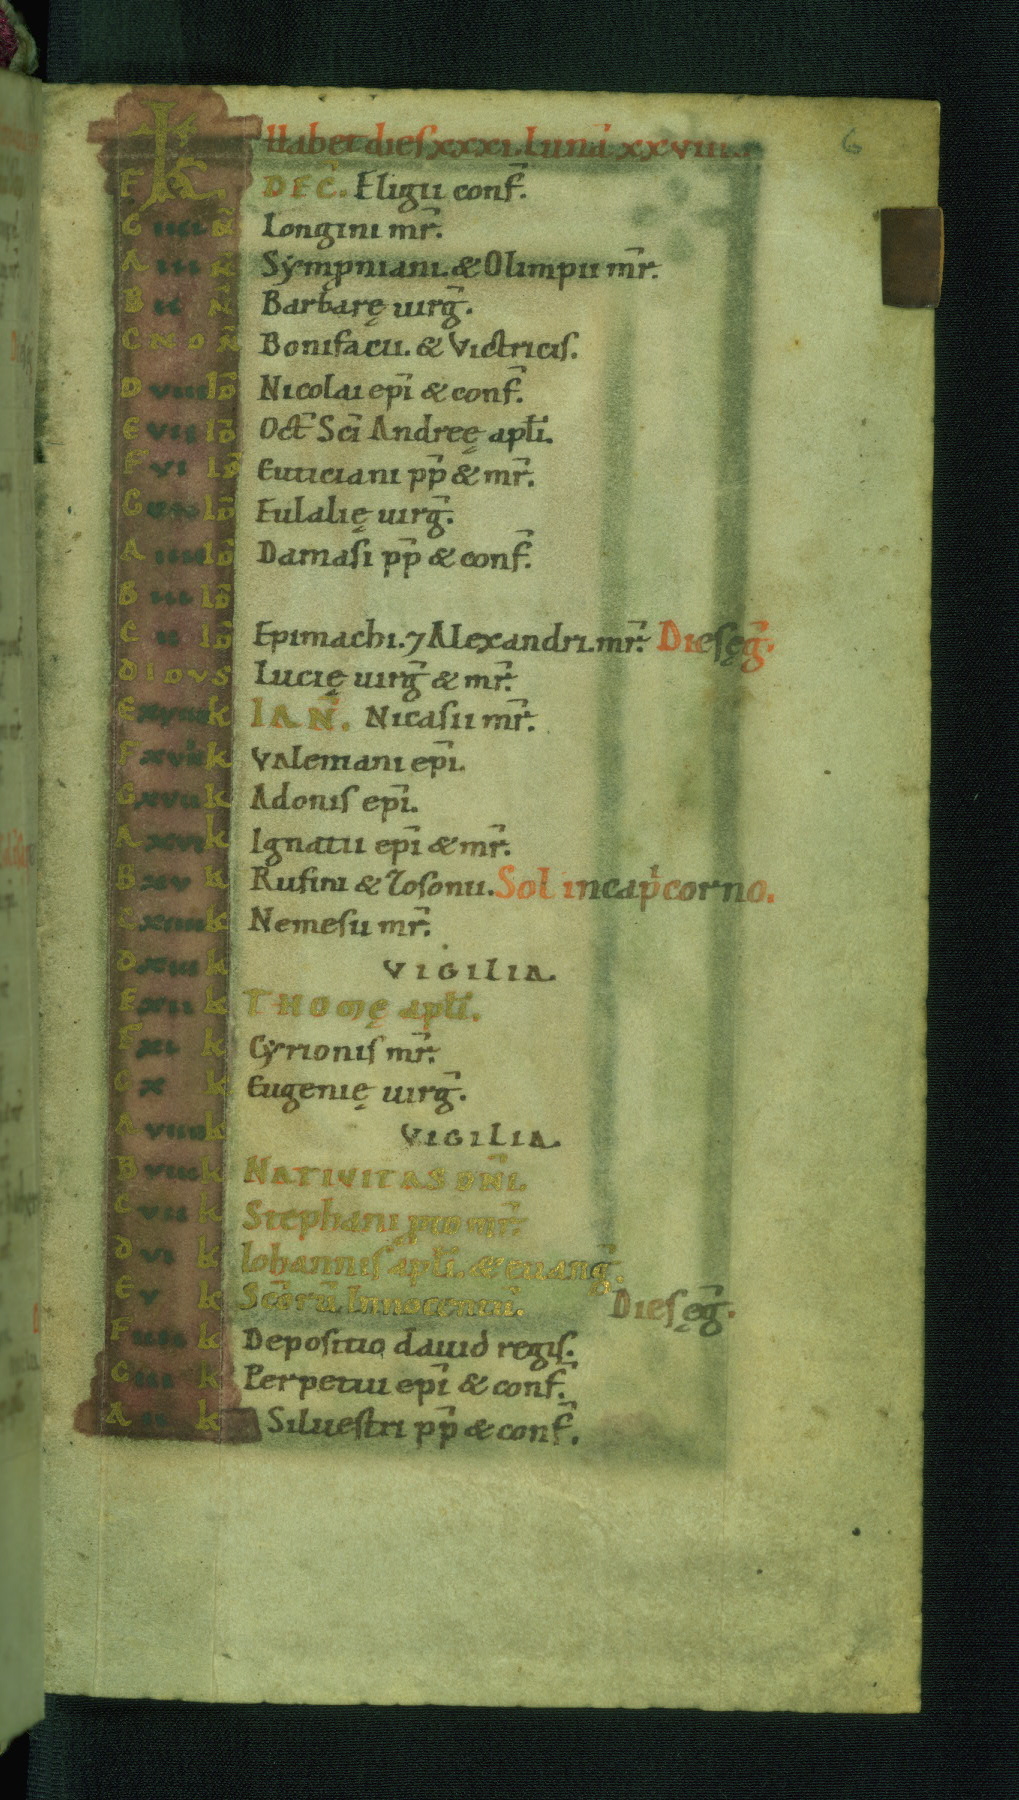 Habet dies xxxi. Luna xxviiii. 6
F KL DEC̄. Eligii conf̄.
G iiii N̄ Longini mr̄.
A iii N̄ Sẏmpniani. & Olimpii mr̄.
B ii N̄ Barbarę uirḡ.
C N O N̄ Bonifacii. & Victricis.
D viii ID̄ Nicolai epī & conf̄.
E vii ID̄ Oct̄ Scī Andreę aptī.
F vi ID̄ Euticiani pp̄ & mr̄.
G ID̄ Eulalię uirḡ.
A iiii ID̄ Damasi pp̄ & conf̄.
B iii ID̄
C ii ID̄ Epimachi. ⁊ Alexandri. mr̄. Dies ęḡ.
D IDVS Lucię uirḡ & mr̄.
E k IAN̄. Nicasii mr̄.
F k Valeriani epī.
G xvii k Adonis epī.
A xvi k Ignatii epī & mr̄.
B xv k Rufini & Zosonii. Sol in capͥcorno.
C xiiii k Nemesii mr̄.
D xiii k VIGILIA.
E xii k THOMĘ aptī.
F xi k Cẏrionis mr̄.
G x k Eugenię uirḡ.
A viiii k VIGILIA.
B viii k NATIVITAS DN̄I.
C vii k Stephani ꝓto mr̄.
D vi k Iohannis aptī. & euanḡ.
E v k Scōrū Innocentiū. Dies ęḡ.
F iiii k Depositio dauid regis.
G iii k Perpetui epī & conf̄.
A ii k Siluestri pp̄ & conf̄.